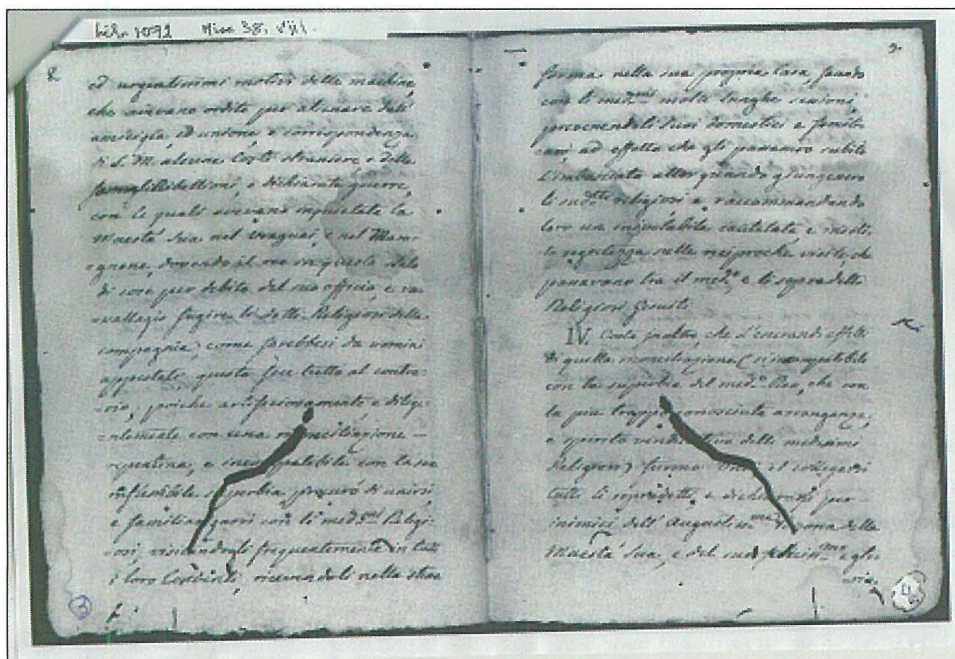 Lib. 1091 Misc 38. VIII.
8
ed urgentissimi motivi delle machine
che avevano ordite per alienare dall'
amicizia, ed unione e corrispondenza
di S. M. alcune Corti straniere, e delle
ribellioni, e dichiarate guerre,
con le quali avevano inquietata la
Maestà Sua nel Uraguai, e nel Mara-
gnone, dovendo al reo in questo stato
di cose per debito del suo officio, e va-
vallagio fugire li detti Religiosi della
compagnia; come farebbesi da uomini
appestati, questo fece tutto al contra-
rio, poiche e dilige-
ntemente con una riconciliazione
repentina, e incompatibile con la sua
superbia, procurò di unirsi
e familiarizzarsi con li med.mi Religi-
osi, visitandogli frequentemente in tutti
i loro Conventi, ricevendoli nella stess
3
9.
forma nella sua propria Casa facendo
con li med.mi molte lunghe sessioni,
prevenendo li suoi domestici e famili-
ari, ad effetto che gli passassero subito
l'imbasciata allor quando giungessero
li sud.tti religiosi e, raccommandando
loro una cautelata e
segretezza nelle reciproche visite, che
passavano tra il med.o e li sopra detti
Religiosi Gesuiti
IV. Costa inoltre, che l'
di quella riconciliazione (si incompatibile
con la superbia del med.o Reo, che con
la pur troppo conosciuta arroganza,
e spirito vendicativo delli medesimi
Religiosi) furono
tutti li sopradetti, e dichiararsi per
inimici dell' Augustiss.ma della
Maestà Sua, e del suo e glo-
ria,
4